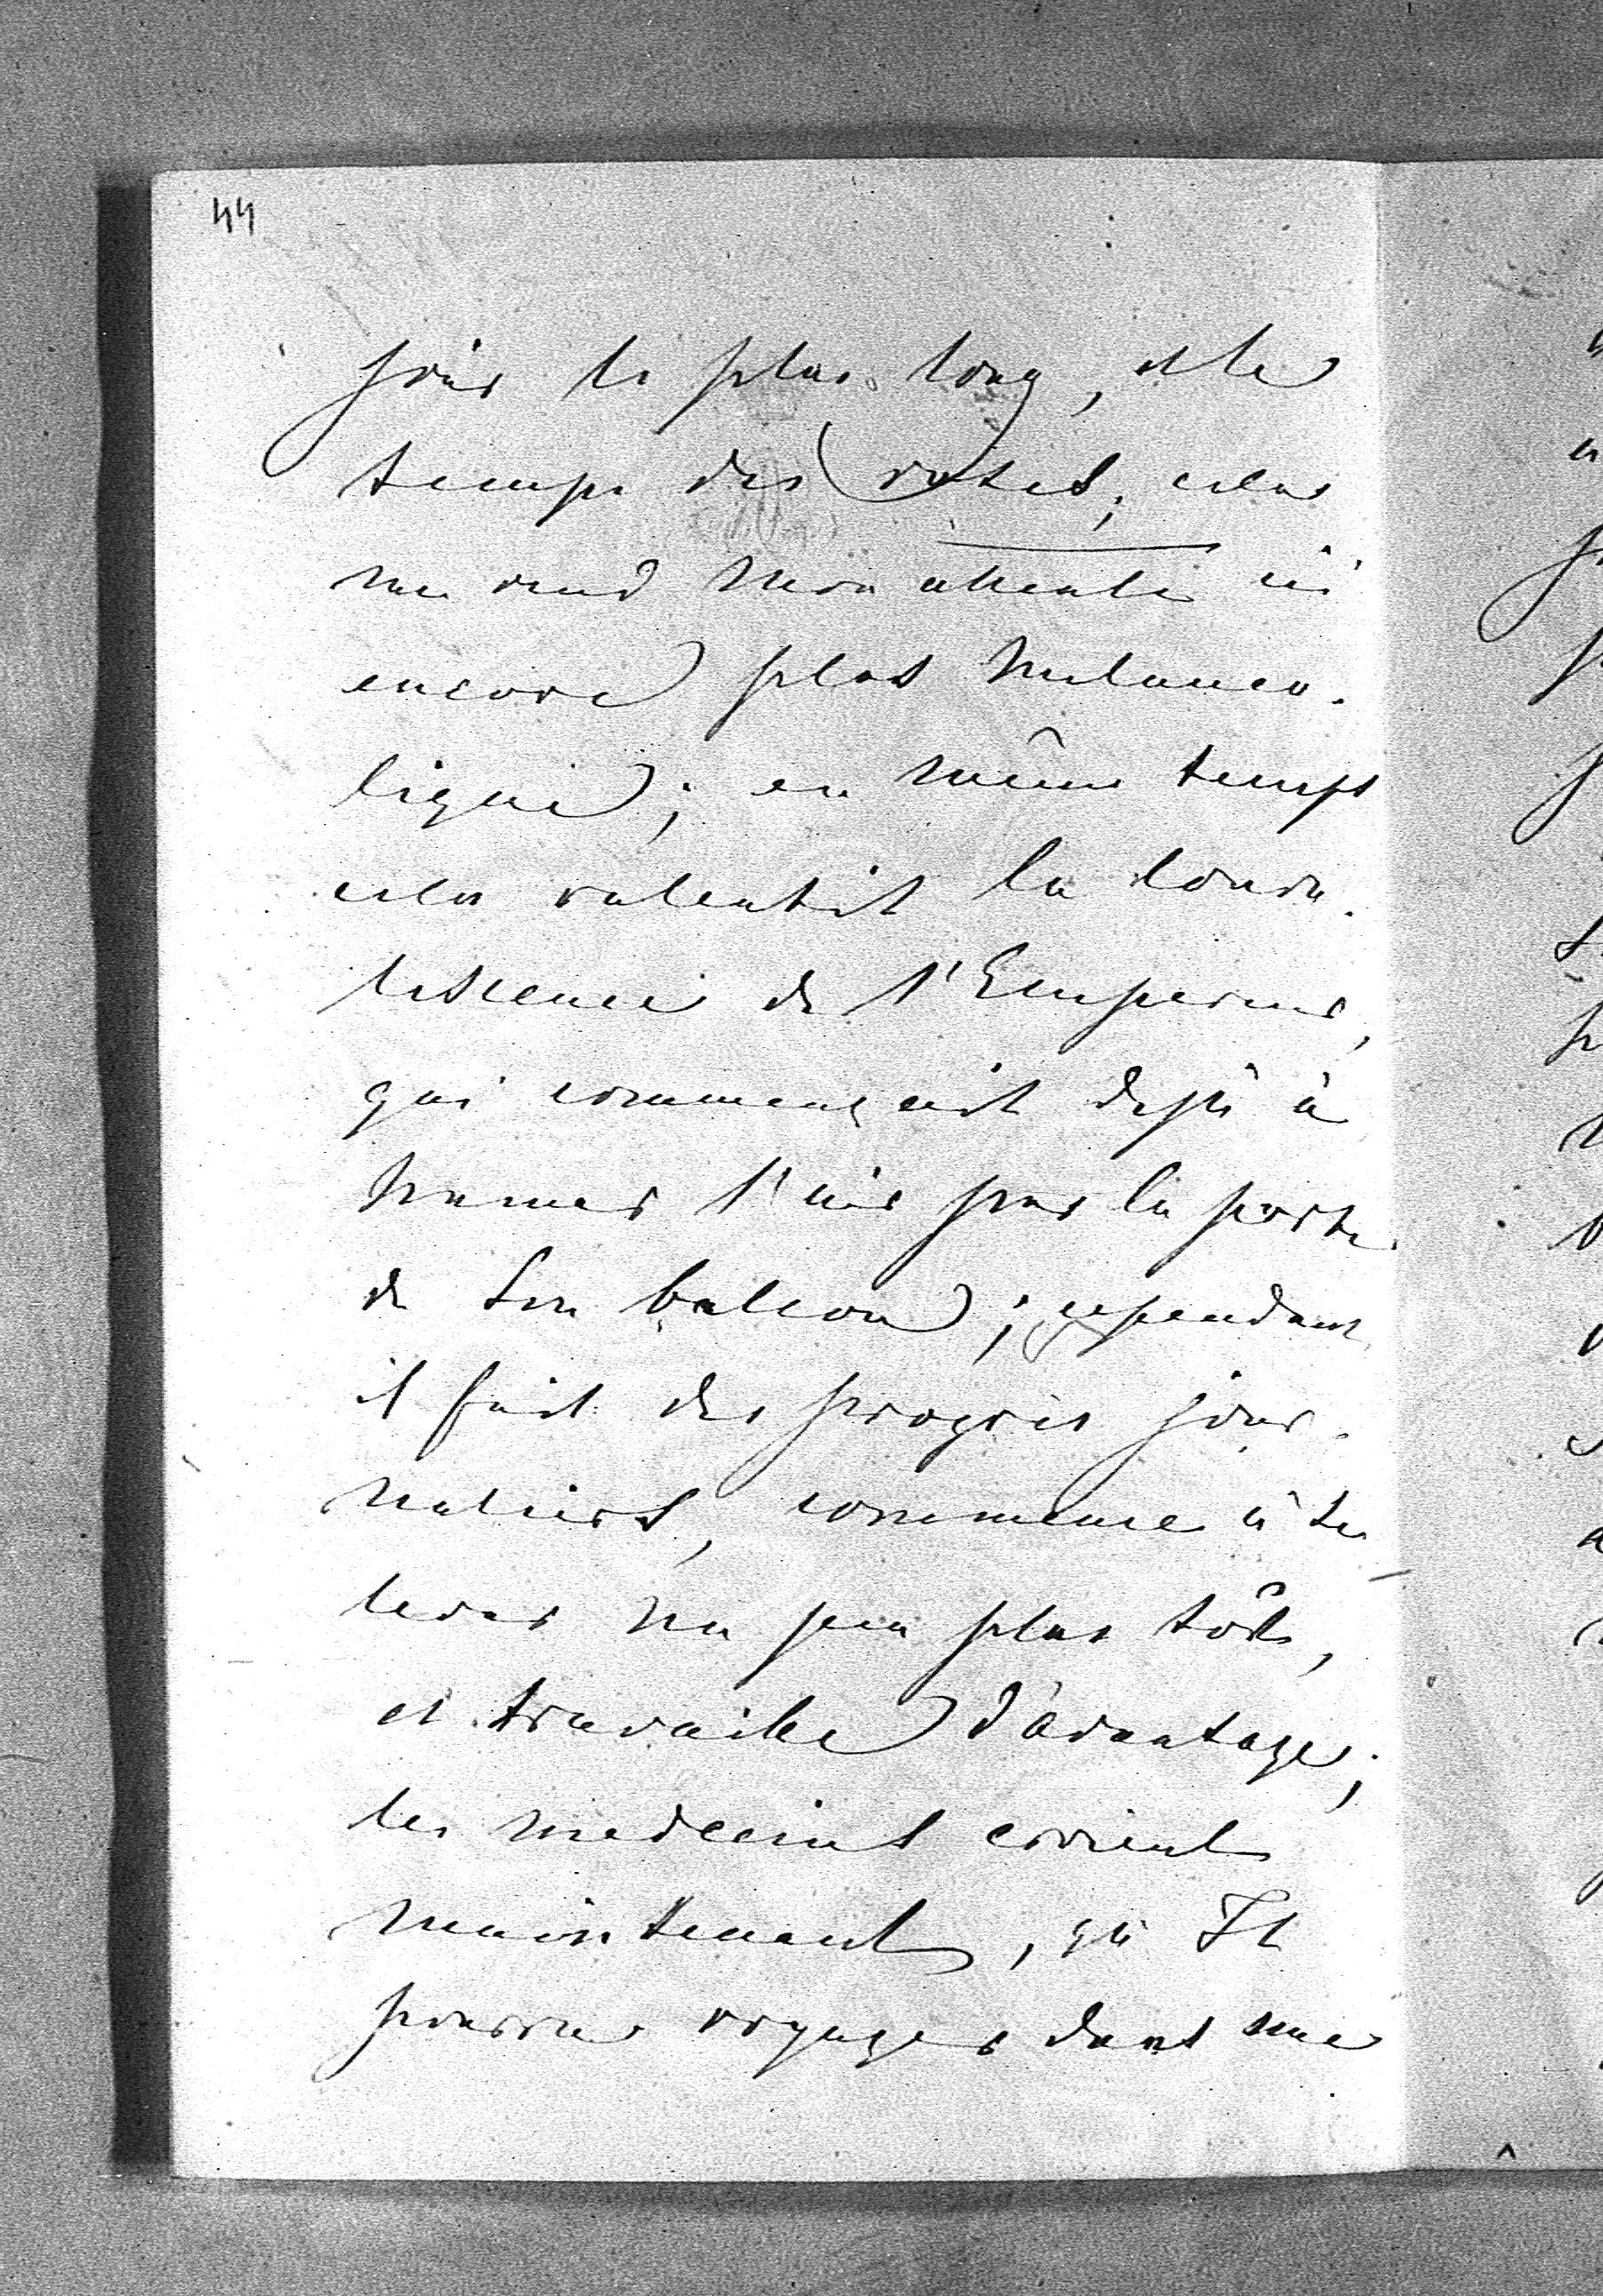 44
jour le plus long, et le
temps des roses; cela
me rend mon attente ici
encore plus melanco-
lique; en même temps
cela ralentit la conva-
lescence de l'Empereur,
qui commençait dejà à
humer l'air par la porte
de Son balcon; cependant
il fait des progrès jour-
naliers, commence à se
lever un peu plus tôt,
et travaille d'avantage;
les medecins croient
maintenant, qu'Il
pourra voyager dans une